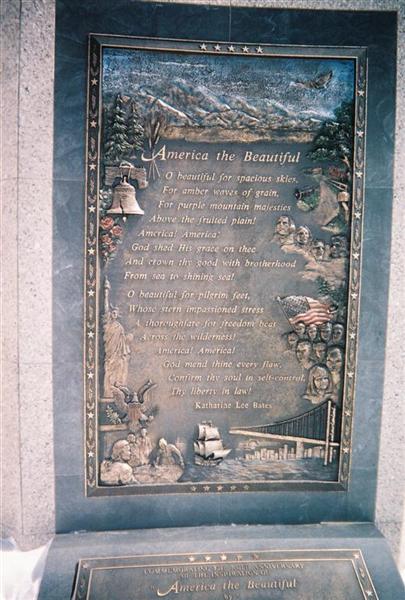 America the Beautiful
O beautiful for spacious skies,
For amber waves of grain,
For purple mountain majesties
Above the fruited plain!
America! America!
God shed His grace on thee
And crown thy good with brotherhood
From sea to shining sea!
O beautiful for pilgrim feet,
Whose stern impassioned stress
A thoroughfare for freedom beat
Across the wilderness!
America! America!
God mend thine every flaw,
Confirm thy soul in self-control,
Thy liberty in law!
Katharine Lee Bates
COMMEMORATING THE ANNIVERSARY
OF THE INSPIRATION OF
America the Beautiful
by